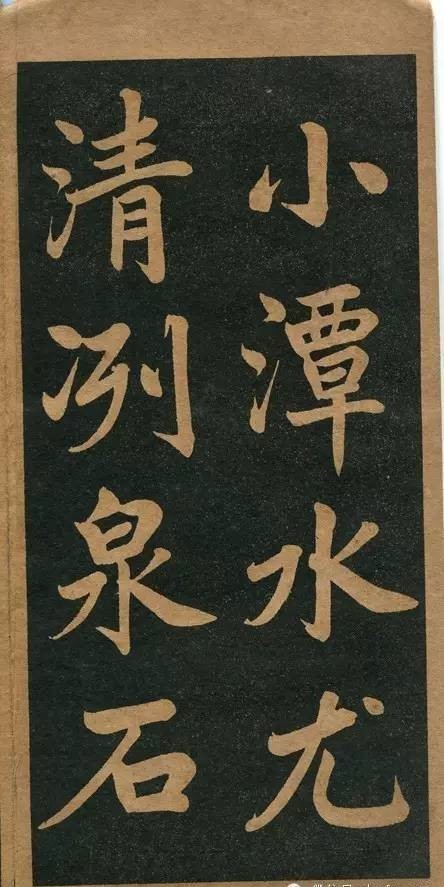 小潭水尤
清冽泉石